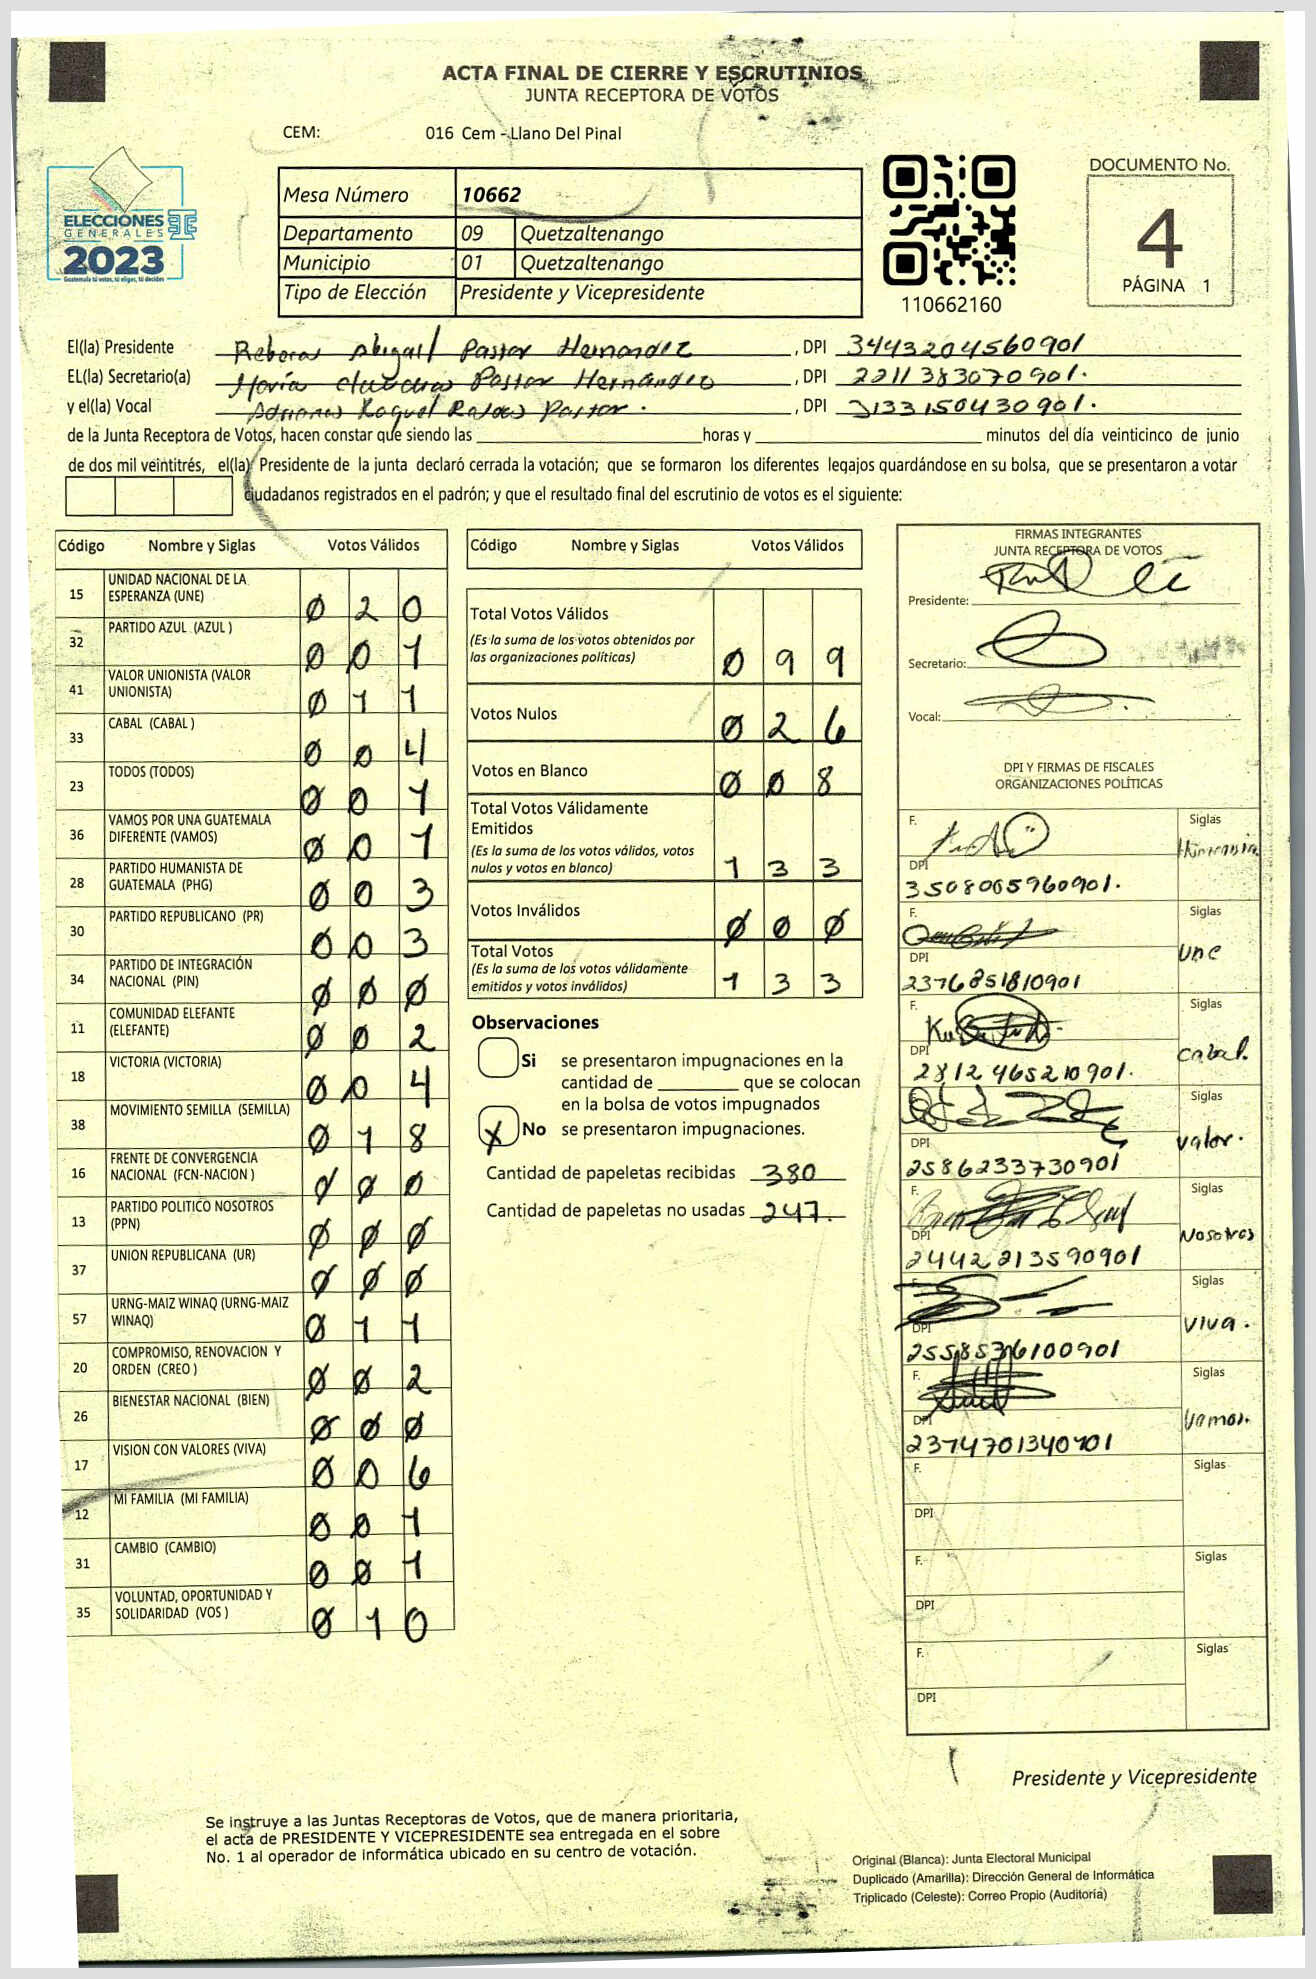 ACTA FINAL DE CIERRE Y ESCRUTINIOS
JUNTA RECEPTORA DE VOTOS
CEM: 016 Cem - Llano Del Pinal
ELECCIONES
GENERALES
2023
Guatemala tú votas, tú eliges, tú decides
Mesa Número 10662
Departamento 09 Quetzaltenango
Municipio 01 Quetzaltenango
Tipo de Elección Presidente y Vicepresidente
110662160
DOCUMENTO No.
4
PÁGINA 1
El(la) Presidente Abigail Pastor Hernandez , DPI 3443204560901
EL(la) Secretario(a) María Pastor Hernández , DPI 2211383070901.
y el(la) Vocal Adriana Raquel Pastor. , DPI 3133150430901.
de la Junta Receptora de Votos, hacen constar que siendo las horas y minutos del día veinticinco de junio
de dos mil veintitrés, el(la) Presidente de la junta declaró cerrada la votación; que se formaron los diferentes legajos guardándose en su bolsa, que se presentaron a votar
ciudadanos registrados en el padrón; y que el resultado final del escrutinio de votos es el siguiente:
Código Nombre y Siglas Votos Válidos
15 UNIDAD NACIONAL DE LA
ESPERANZA (UNE) 0 2 0
32 PARTIDO AZUL (AZUL ) 0 0 1
41 VALOR UNIONISTA (VALOR
UNIONISTA) 0 1 1
33 CABAL (CABAL ) 0 0 4
23 TODOS (TODOS) 0 0 1
36 VAMOS POR UNA GUATEMALA
DIFERENTE (VAMOS) 0 0 1
28 PARTIDO HUMANISTA DE
GUATEMALA (PHG) 0 0 3
30 PARTIDO REPUBLICANO (PR) 0 0 3
34 PARTIDO DE INTEGRACIÓN
NACIONAL (PIN) 0 0 0
11 COMUNIDAD ELEFANTE
(ELEFANTE) 0 0 2
18 VICTORIA (VICTORIA) 0 0 4
38 MOVIMIENTO SEMILLA (SEMILLA) 0 1 8
16 FRENTE DE CONVERGENCIA
NACIONAL (FCN-NACION ) 0 0 0
13 PARTIDO POLITICO NOSOTROS
(PPN) 0 0 0
37 UNION REPUBLICANA (UR) 0 0 0
57 URNG-MAIZ WINAQ (URNG-MAIZ
WINAQ) 0 1 1
20 COMPROMISO, RENOVACION Y
ORDEN (CREO ) 0 0 2
26 BIENESTAR NACIONAL (BIEN) 0 0 0
17 VISION CON VALORES (VIVA) 0 0 6
12 MI FAMILIA (MI FAMILIA) 0 0 1
31 CAMBIO (CAMBIO) 0 0 1
35 VOLUNTAD, OPORTUNIDAD Y
SOLIDARIDAD (VOS ) 0 1 0
Código Nombre y Siglas Votos Válidos
Total Votos Válidos
(Es la suma de los votos obtenidos por
las organizaciones políticas) 0 9 9
Votos Nulos 0 2 6
Votos en Blanco 0 0 8
Total Votos Válidamente
Emitidos
(Es la suma de los votos válidos, votos
nulos y votos en blanco) 1 3 3
Votos Inválidos 0 0 0
Total Votos
(Es la suma de los votos válidamente
emitidos y votos inválidos) 1 3 3
Observaciones
Si se presentaron impugnaciones en la
cantidad de que se colocan
en la bolsa de votos impugnados
X No se presentaron impugnaciones.
Cantidad de papeletas recibidas 380
Cantidad de papeletas no usadas 247.
FIRMAS INTEGRANTES
JUNTA RECEPTORA DE VOTOS
Presidente:
Secretario:
Vocal:
DPI Y FIRMAS DE FISCALES
ORGANIZACIONES POLÍTICAS
F. Siglas
DPI
3508005960901.
F. Siglas
DPI une
2376851810901
F. Siglas
DPI cabal.
2812465210901.
Siglas
DPI valor.
2586233730901
F. Siglas
DPI Nosotros
2442213590901
F. Siglas
DPI viva.
2558536100901
F. Siglas
DPI vamos.
2374701340901
F. Siglas
DPI
F. Siglas
DPI
F. Siglas
DPI
Presidente y Vicepresidente
Se instruye a las Juntas Receptoras de Votos, que de manera prioritaria,
el acta de PRESIDENTE Y VICEPRESIDENTE sea entregada en el sobre
No. 1 al operador de informática ubicado en su centro de votación.
Original (Blanca): Junta Electoral Municipal
Duplicado (Amarilla): Dirección General de Informática
Triplicado (Celeste): Correo Propio (Auditoría)